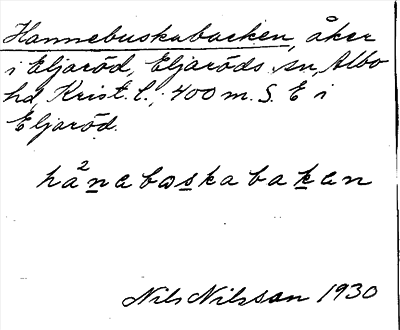 Hannebuskabacken, åker
i Eljaröd, Eljaröds sn, Albo
hd, Krist. l., 400 m. S. E i
Eljaröd.
hå²nabɷskabakan
Nils Nilsson 1930